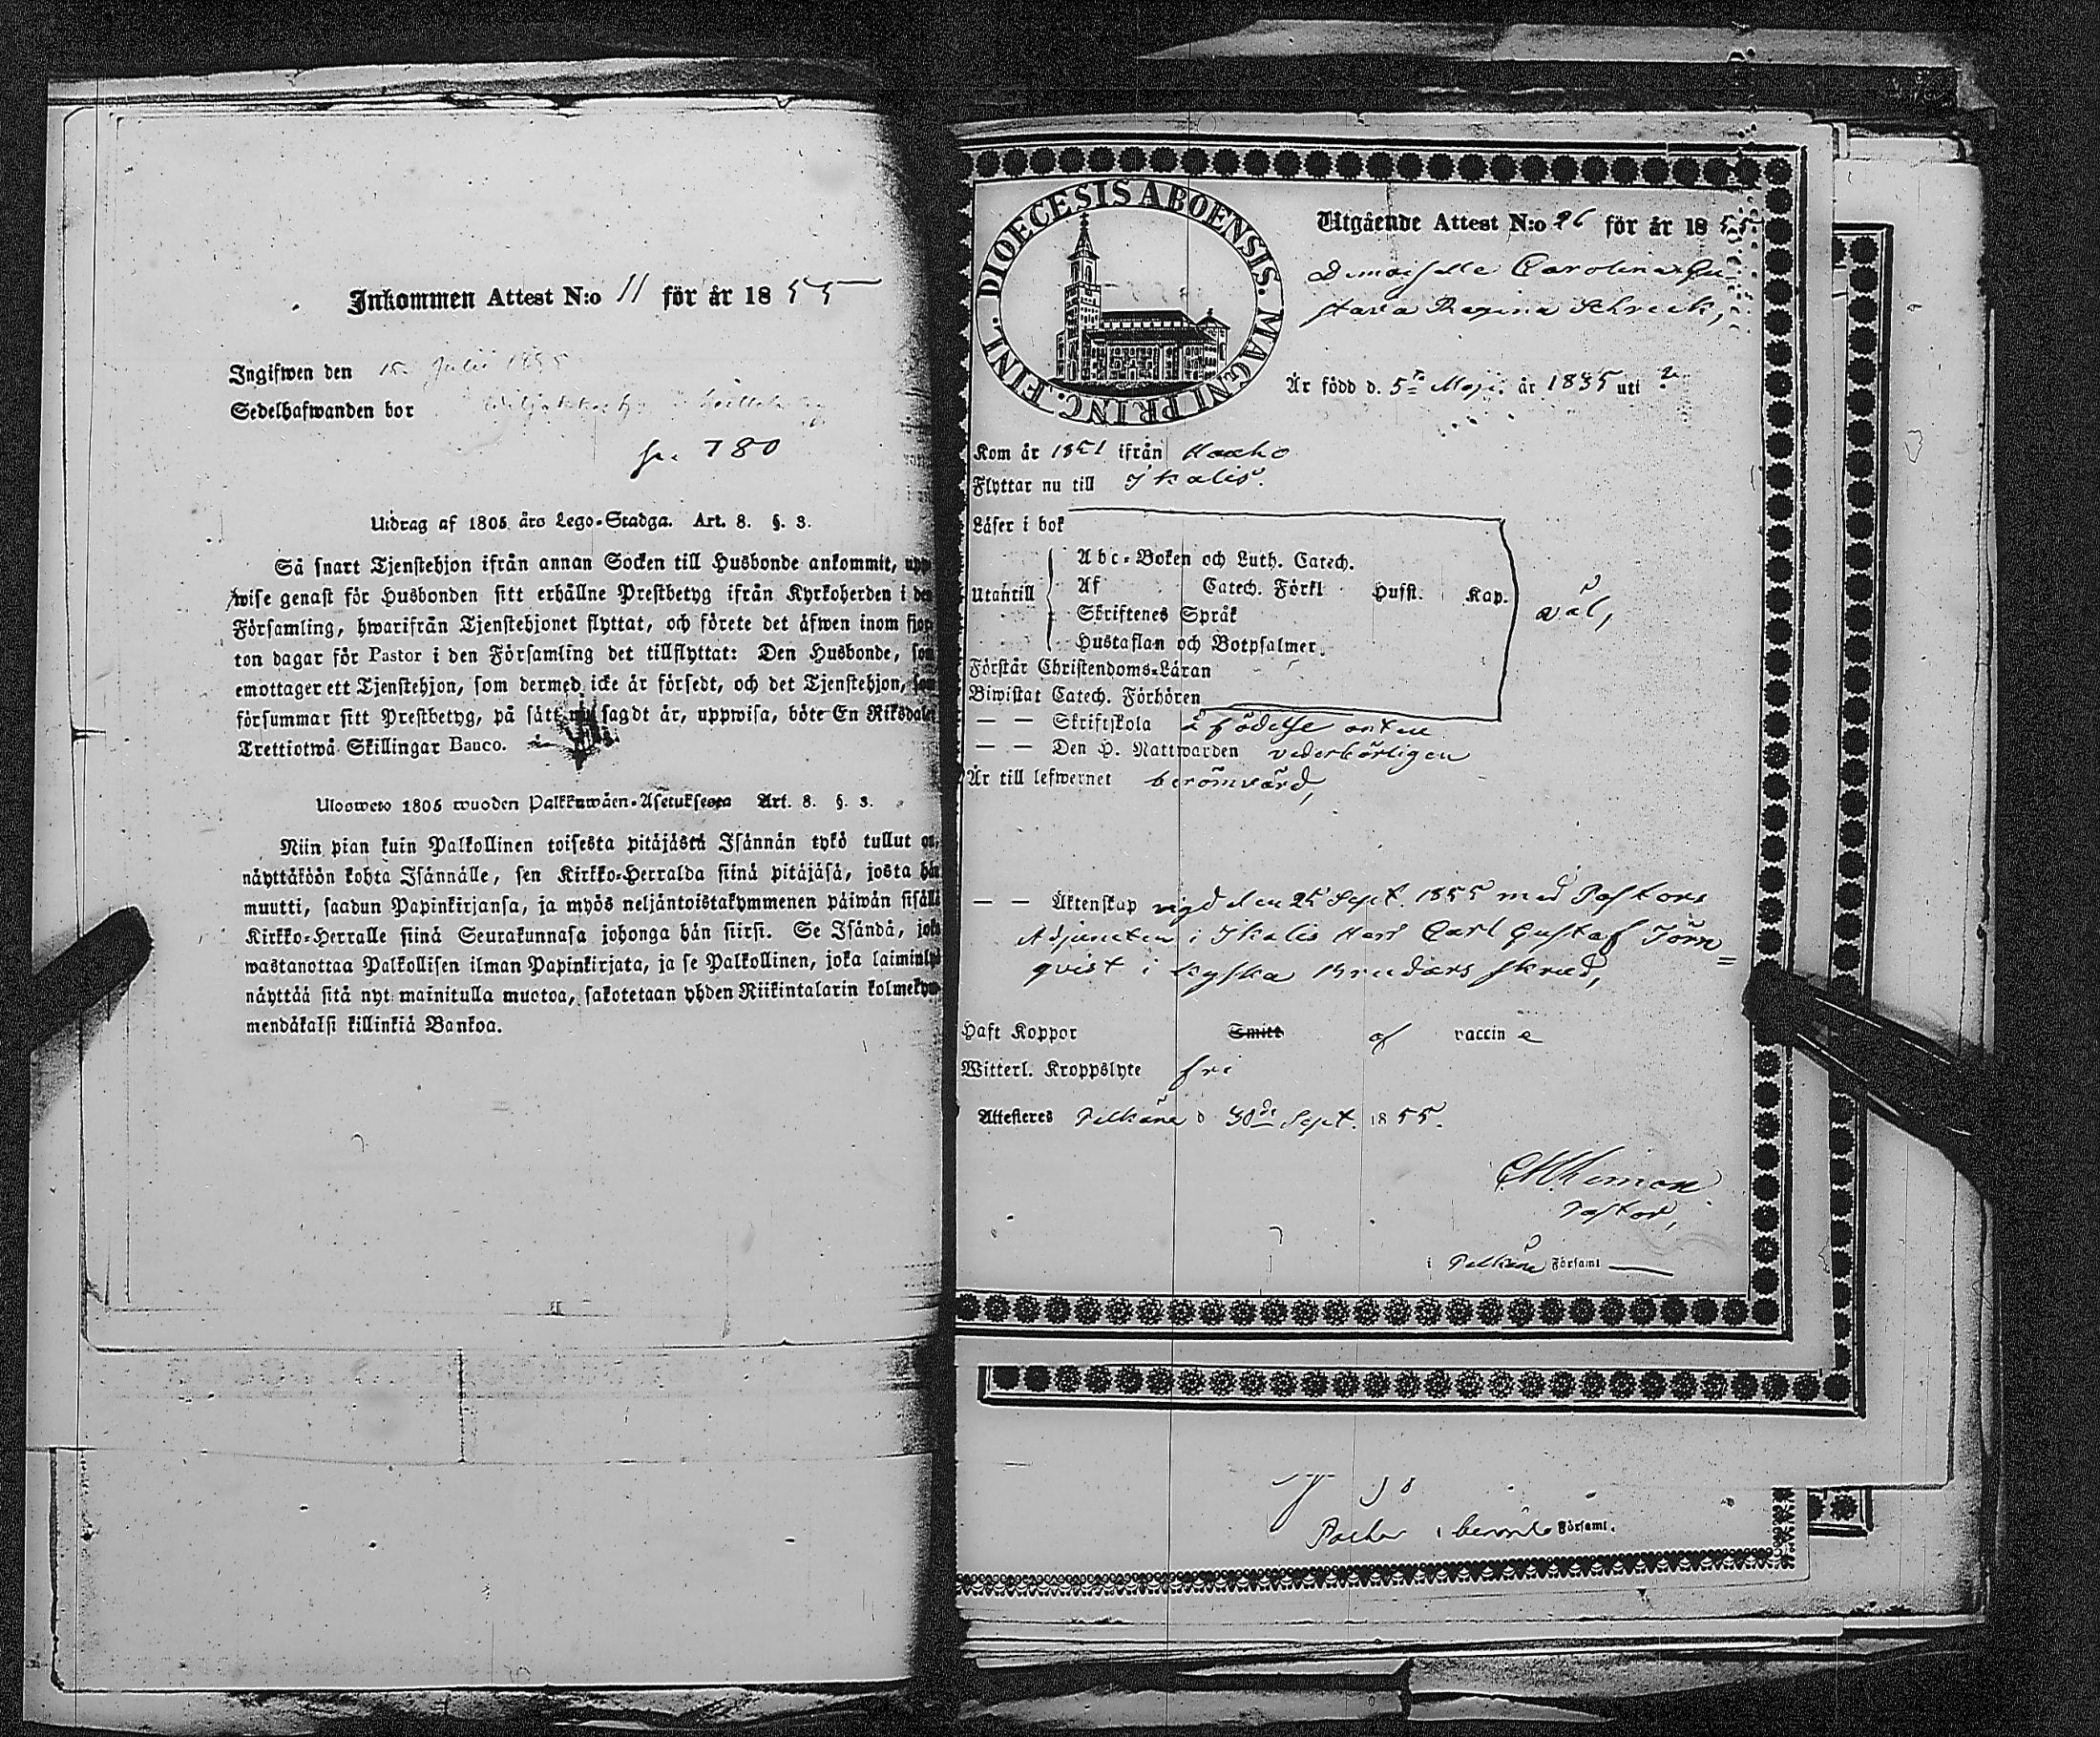 Inkommen Attest N:o 11 för år 1855
Ingifwen den 15 Julii 1855
Sedelhafwanden bor
780
Utdrag af 1805 års Lego-Stadga. Art. 8. §. 3.
Så snart Tjenstehjon ifrån annan Socken till Husbonde ankommit, upp
wise genast för Husbonden sitt erhållne Prestbetyg ifrån Kyrkoherden i den
Församling, hwarifrån Tjenstehjonet flyttat, och förete det äfwen inom fjor
ton dagar för Pastor i den Församling det tillflyttat: Den Husbonde, som
emottager ett Tjenstehjon, som dermed icke är försedt, och det Tjenstehjon, som
försummar sitt Prestbetyg, på sätt nu sagdt är, uppwisa, böte En Riksdaler
Trettiotwå Skillingar Banco.
Ulosweto 1805 wuoden Palkkawäen-Asetuksesta Art. 8. §. 3.
Niin pian kuin Palkollinen toisesta pitäjästä Isännän tykö tullut on,
näyttäköön kohta Isännälle, sen Kirkko-Herralda siinä pitäjäsä, josta hän
muutti, saadun Papinkirjansa, ja myös neljäntoistakymmenen päiwän sisällä
Kirkko-Herralle siinä Seurakunnasa johonga hän siirsi. Se Isändä, joka
wastanottaa Palkollisen ilman Papinkirjata, ja se Palkollinen, joka laiminlyö
näyttää sitä nyt mainitulla muotoa, sakotetaan yhden Riikintalarin kolmekym
mendäkaksi killinkiä Bankoa.
DIOECESIS ABOENSIS. MAGNI PRINC. FINL.
Utgående Attest N:o 26 för år 1855
Demoiselle Carolina Gu
stava Regina Schreck,
Är född d. 5te Maji år 1835 uti
Kom år 1851 ifrån Hauho
Flyttar nu till Ikalis.
Läser i bok
Abc-Boken och Luth. Catech.
Utantill Af Catech. Förkl Hufst. Kap. väl,
Skriftenes Språk
Hustaflan och Botpsalmer.
Förstår Christendoms-Läran
Biwistat Catech. Förhören
— — Skriftskola å födelse orten
— — Den H. Nattwarden vederbörligen
Är till lefwernet berömvärd,
— — Äktenskap vigd den 25 Sept. 1855 med Pastors
Adjuncten i Ikalis Herr Carl Gustaf Törn=
qvist i kyska Brudars skrud,
Haft Koppor Smitt af vaccin e
Witterl. Kroppslyte fri
Attesteras Pelkäne d 30de Sept. 1855.
Pastor,
i Pelkäne Församl
Församl.